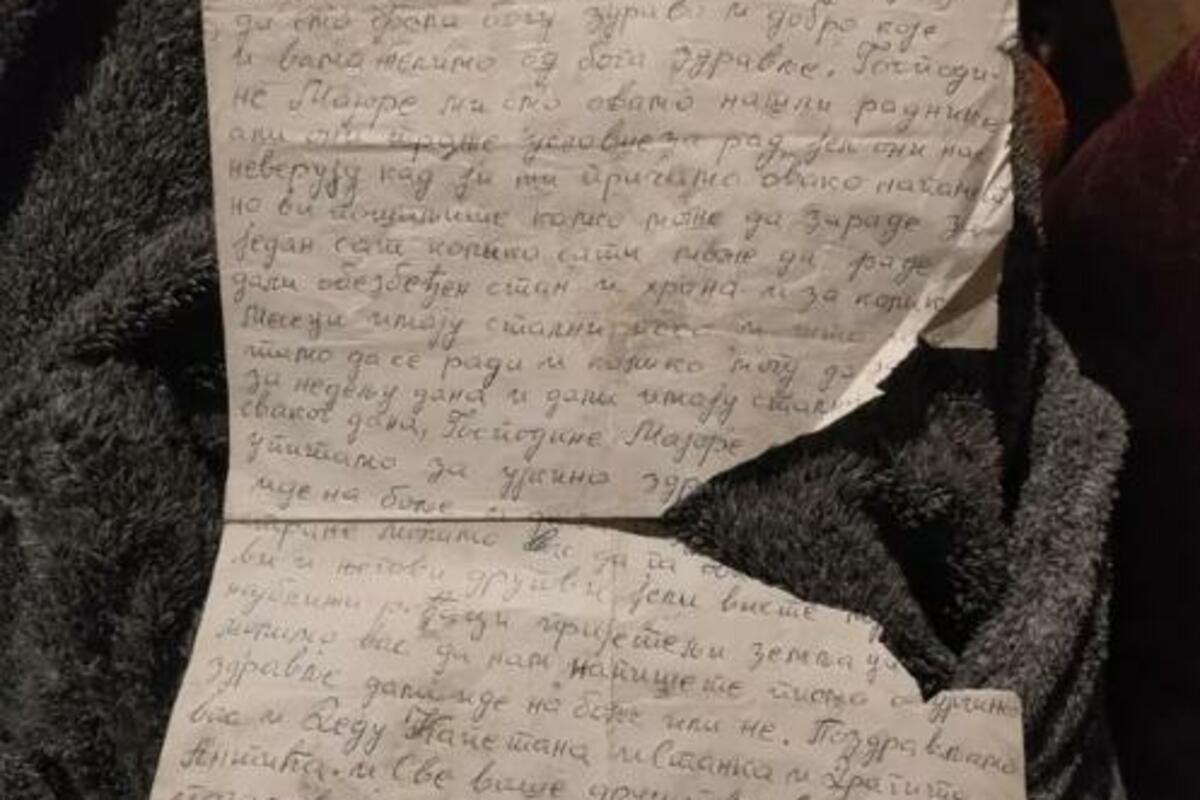 да смо фали богу здрави и добро које
и вама желимо од бога здравље. Господи-
не Мајоре ми смо овамо нашли раднике
али они траже услове за рад, јел они нас
неверују кад ји ми причамо овако
но ви пошаљите колко може да зараде за
један сат колико сати може да раде
дали обезбеђен стан и храна и за колик
Месеци имају стални посао и
тамо да се ради и колико могу да
за недељу дана и дали имају стални
сваког дана, Господине Мајоре
упитамо за ујкино здр
иде на боље
молимо Вас да га
ви и његови другови јели висте
најближи пријатељи земљаци
молимо вас да нам напишете писмо о ујкино
здравље дали иде на боље или не. Поздрављамо
вас и Деду Капетана и Станка и Драгишу
Антића и Све ваше